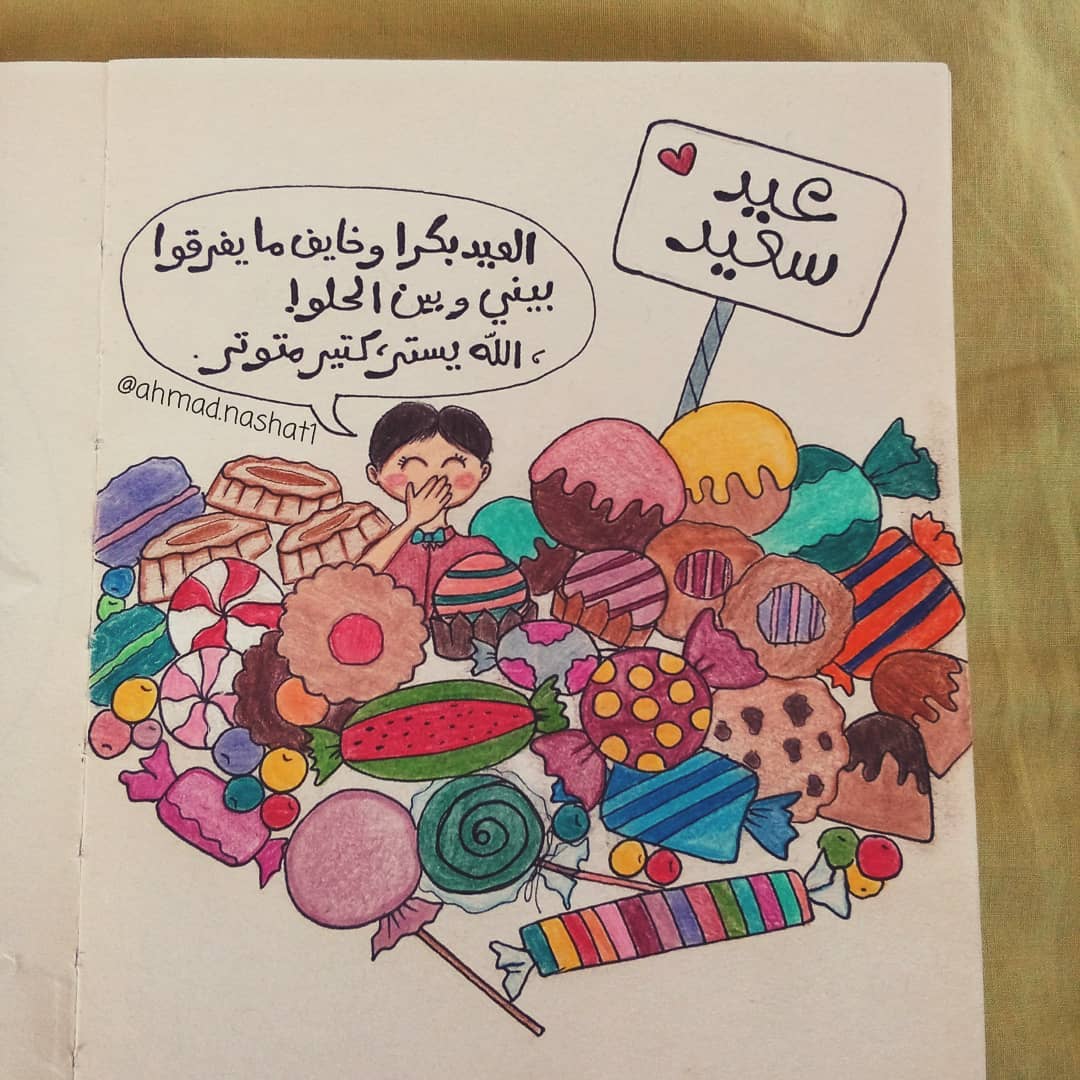 العيد بكرا وخايف ما يفرقوا
بيني وبين الحلو!
، الله يستر، كتير متوتر.
@ahmad.nashat1
عيد
سعيد